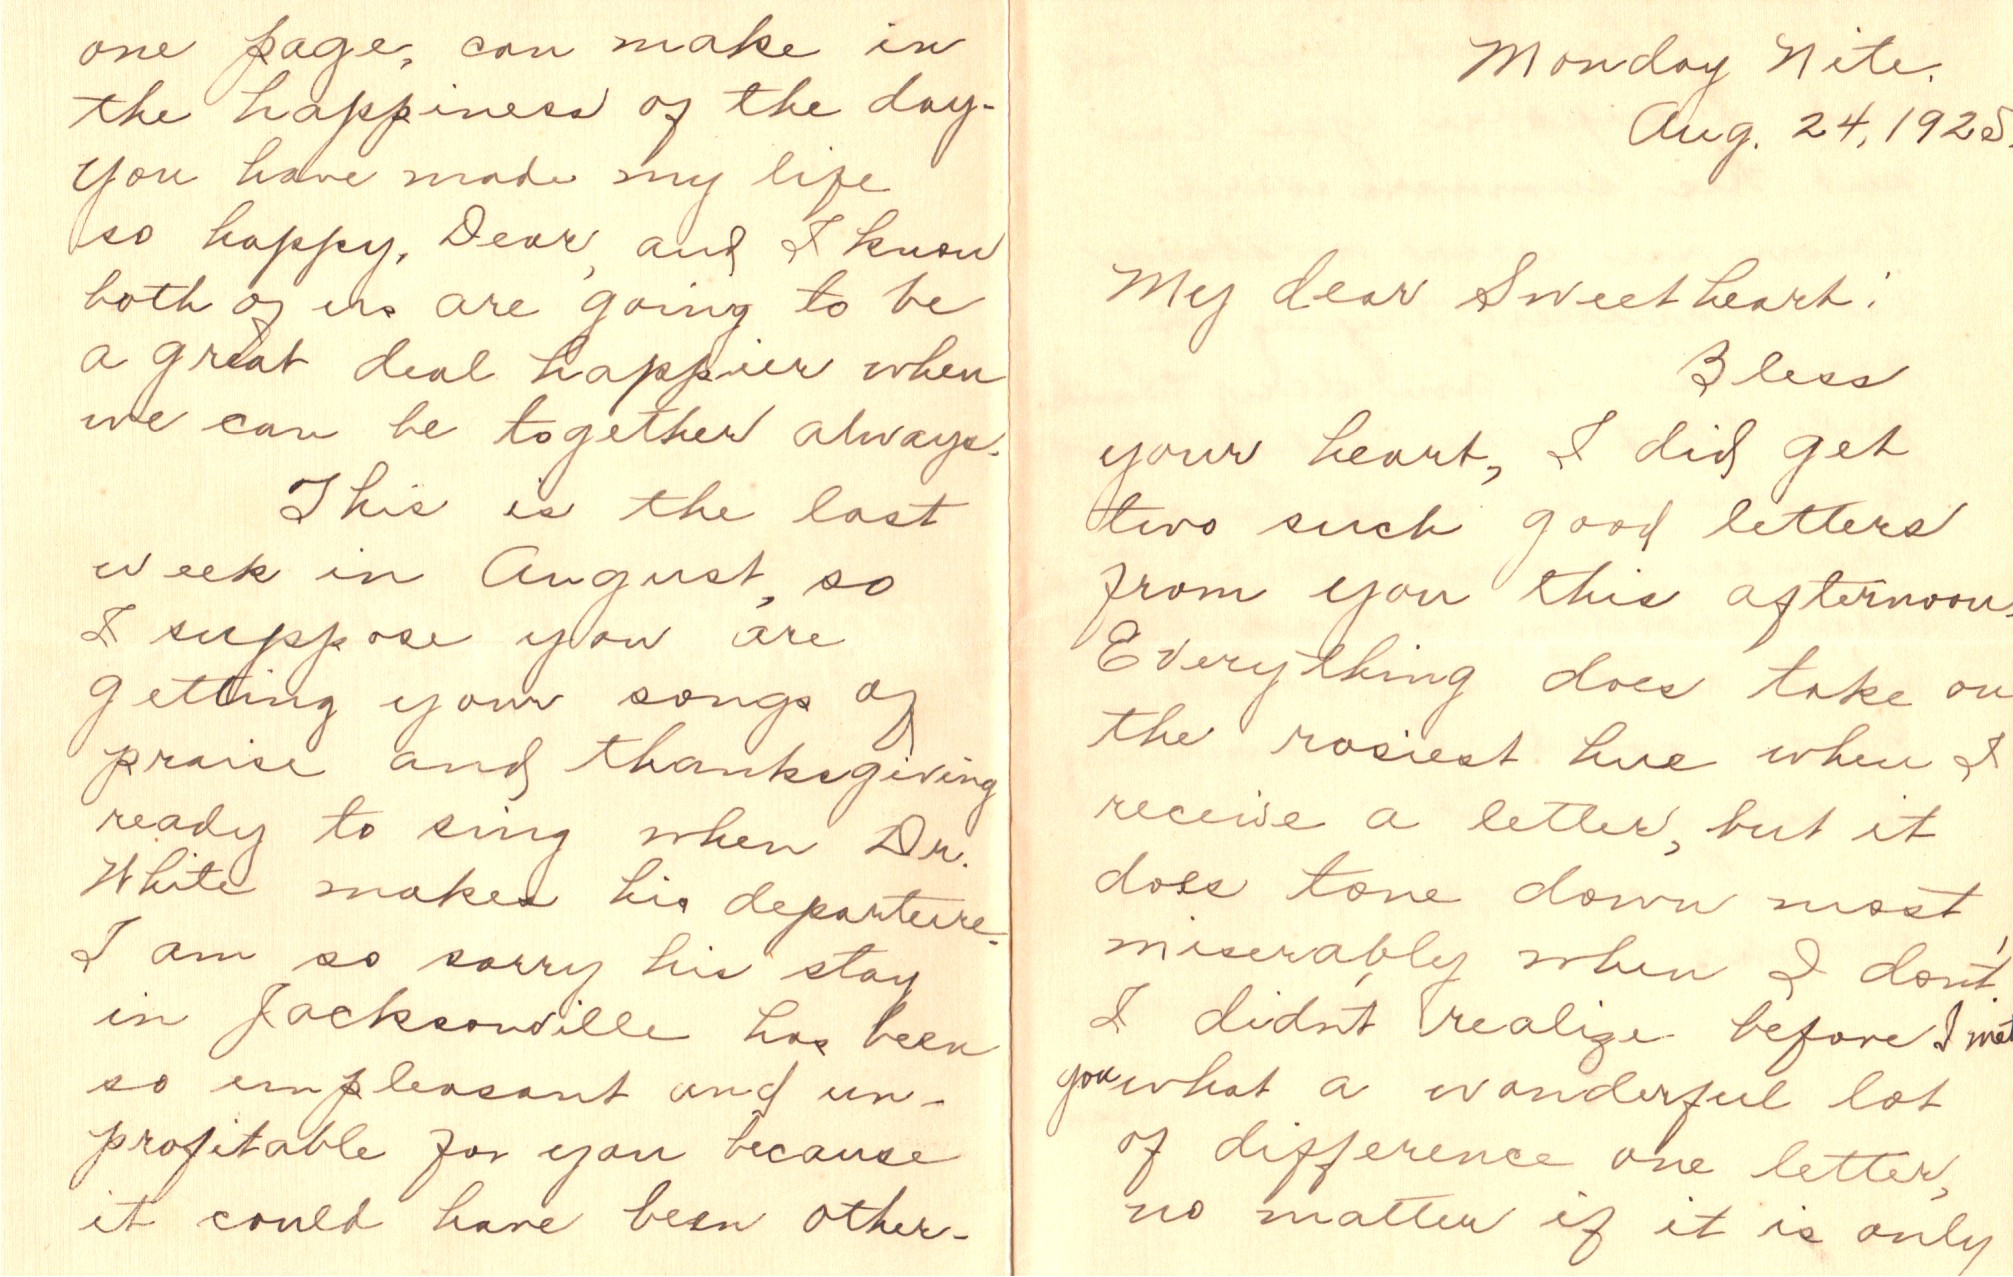 Monday Nite.
Aug. 24, 1925.
My dear Sweetheart:
Bless
your heart, I did get
two such good letters
from you this afternoon.
Everything does take on
the rosiest hue when I
receive a letter, but it
does tone down most
miserably when I don't.
I didn't realize before I met
you what a wonderful lot
of difference one letter,
no matter if it is only
one page, can make in
the happiness of the day.
You have made my life
so happy, Dear, and I know
both of us are going to be
a great deal happier when
we can be together always.
This is the last
week in August, so
I suppose you are
getting your songs of
praise and thanksgiving
ready to sing when Dr.
White makes his departure.
I am so sorry his stay
in Jacksonville has been
so unpleasant and un-
profitable for you because
it could have been other-